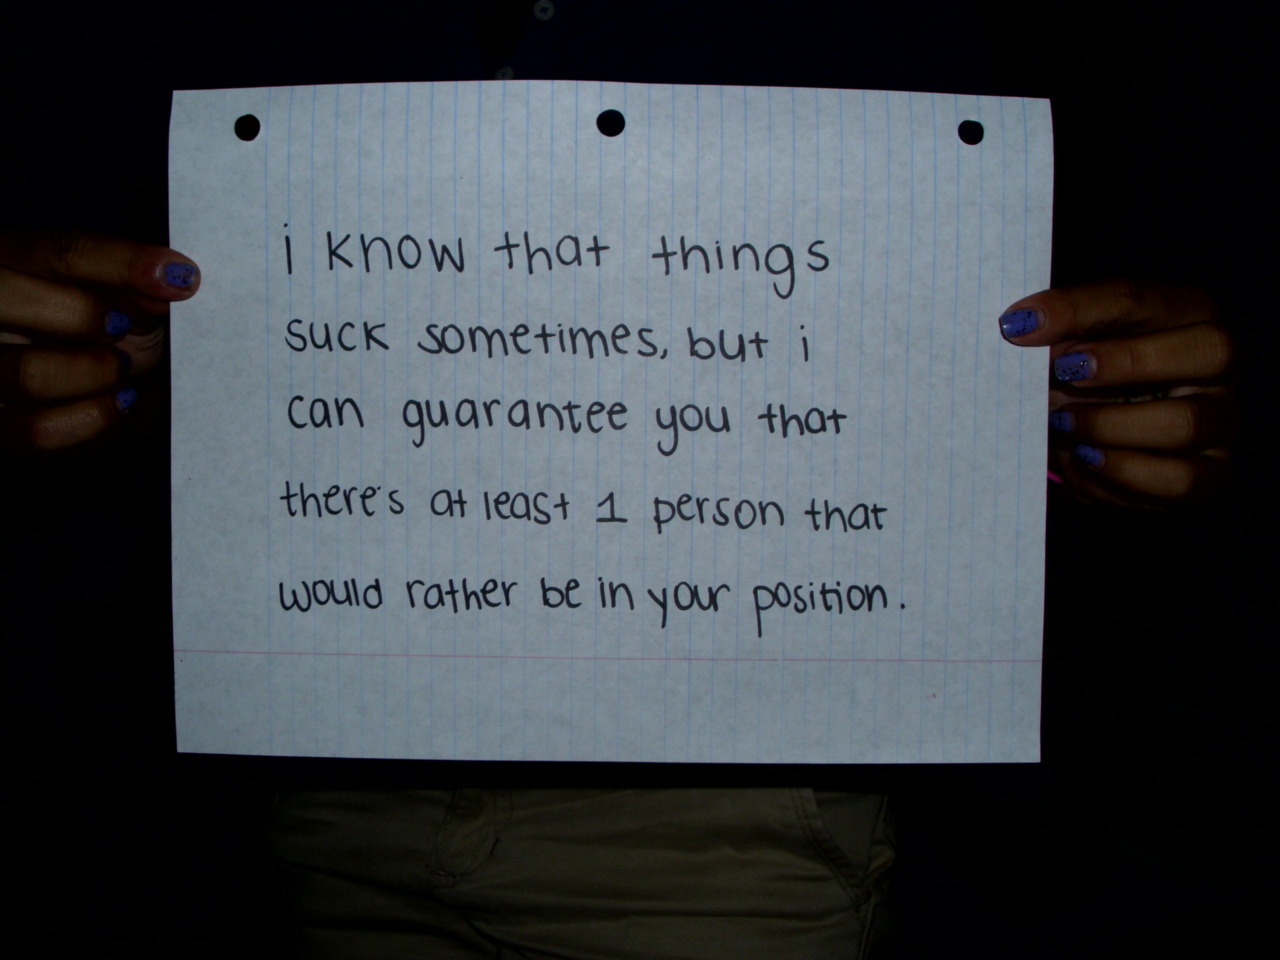 i know that things
suck sometimes, but i
can guarantee you that
there's at least 1 person that
would rather be in your position.